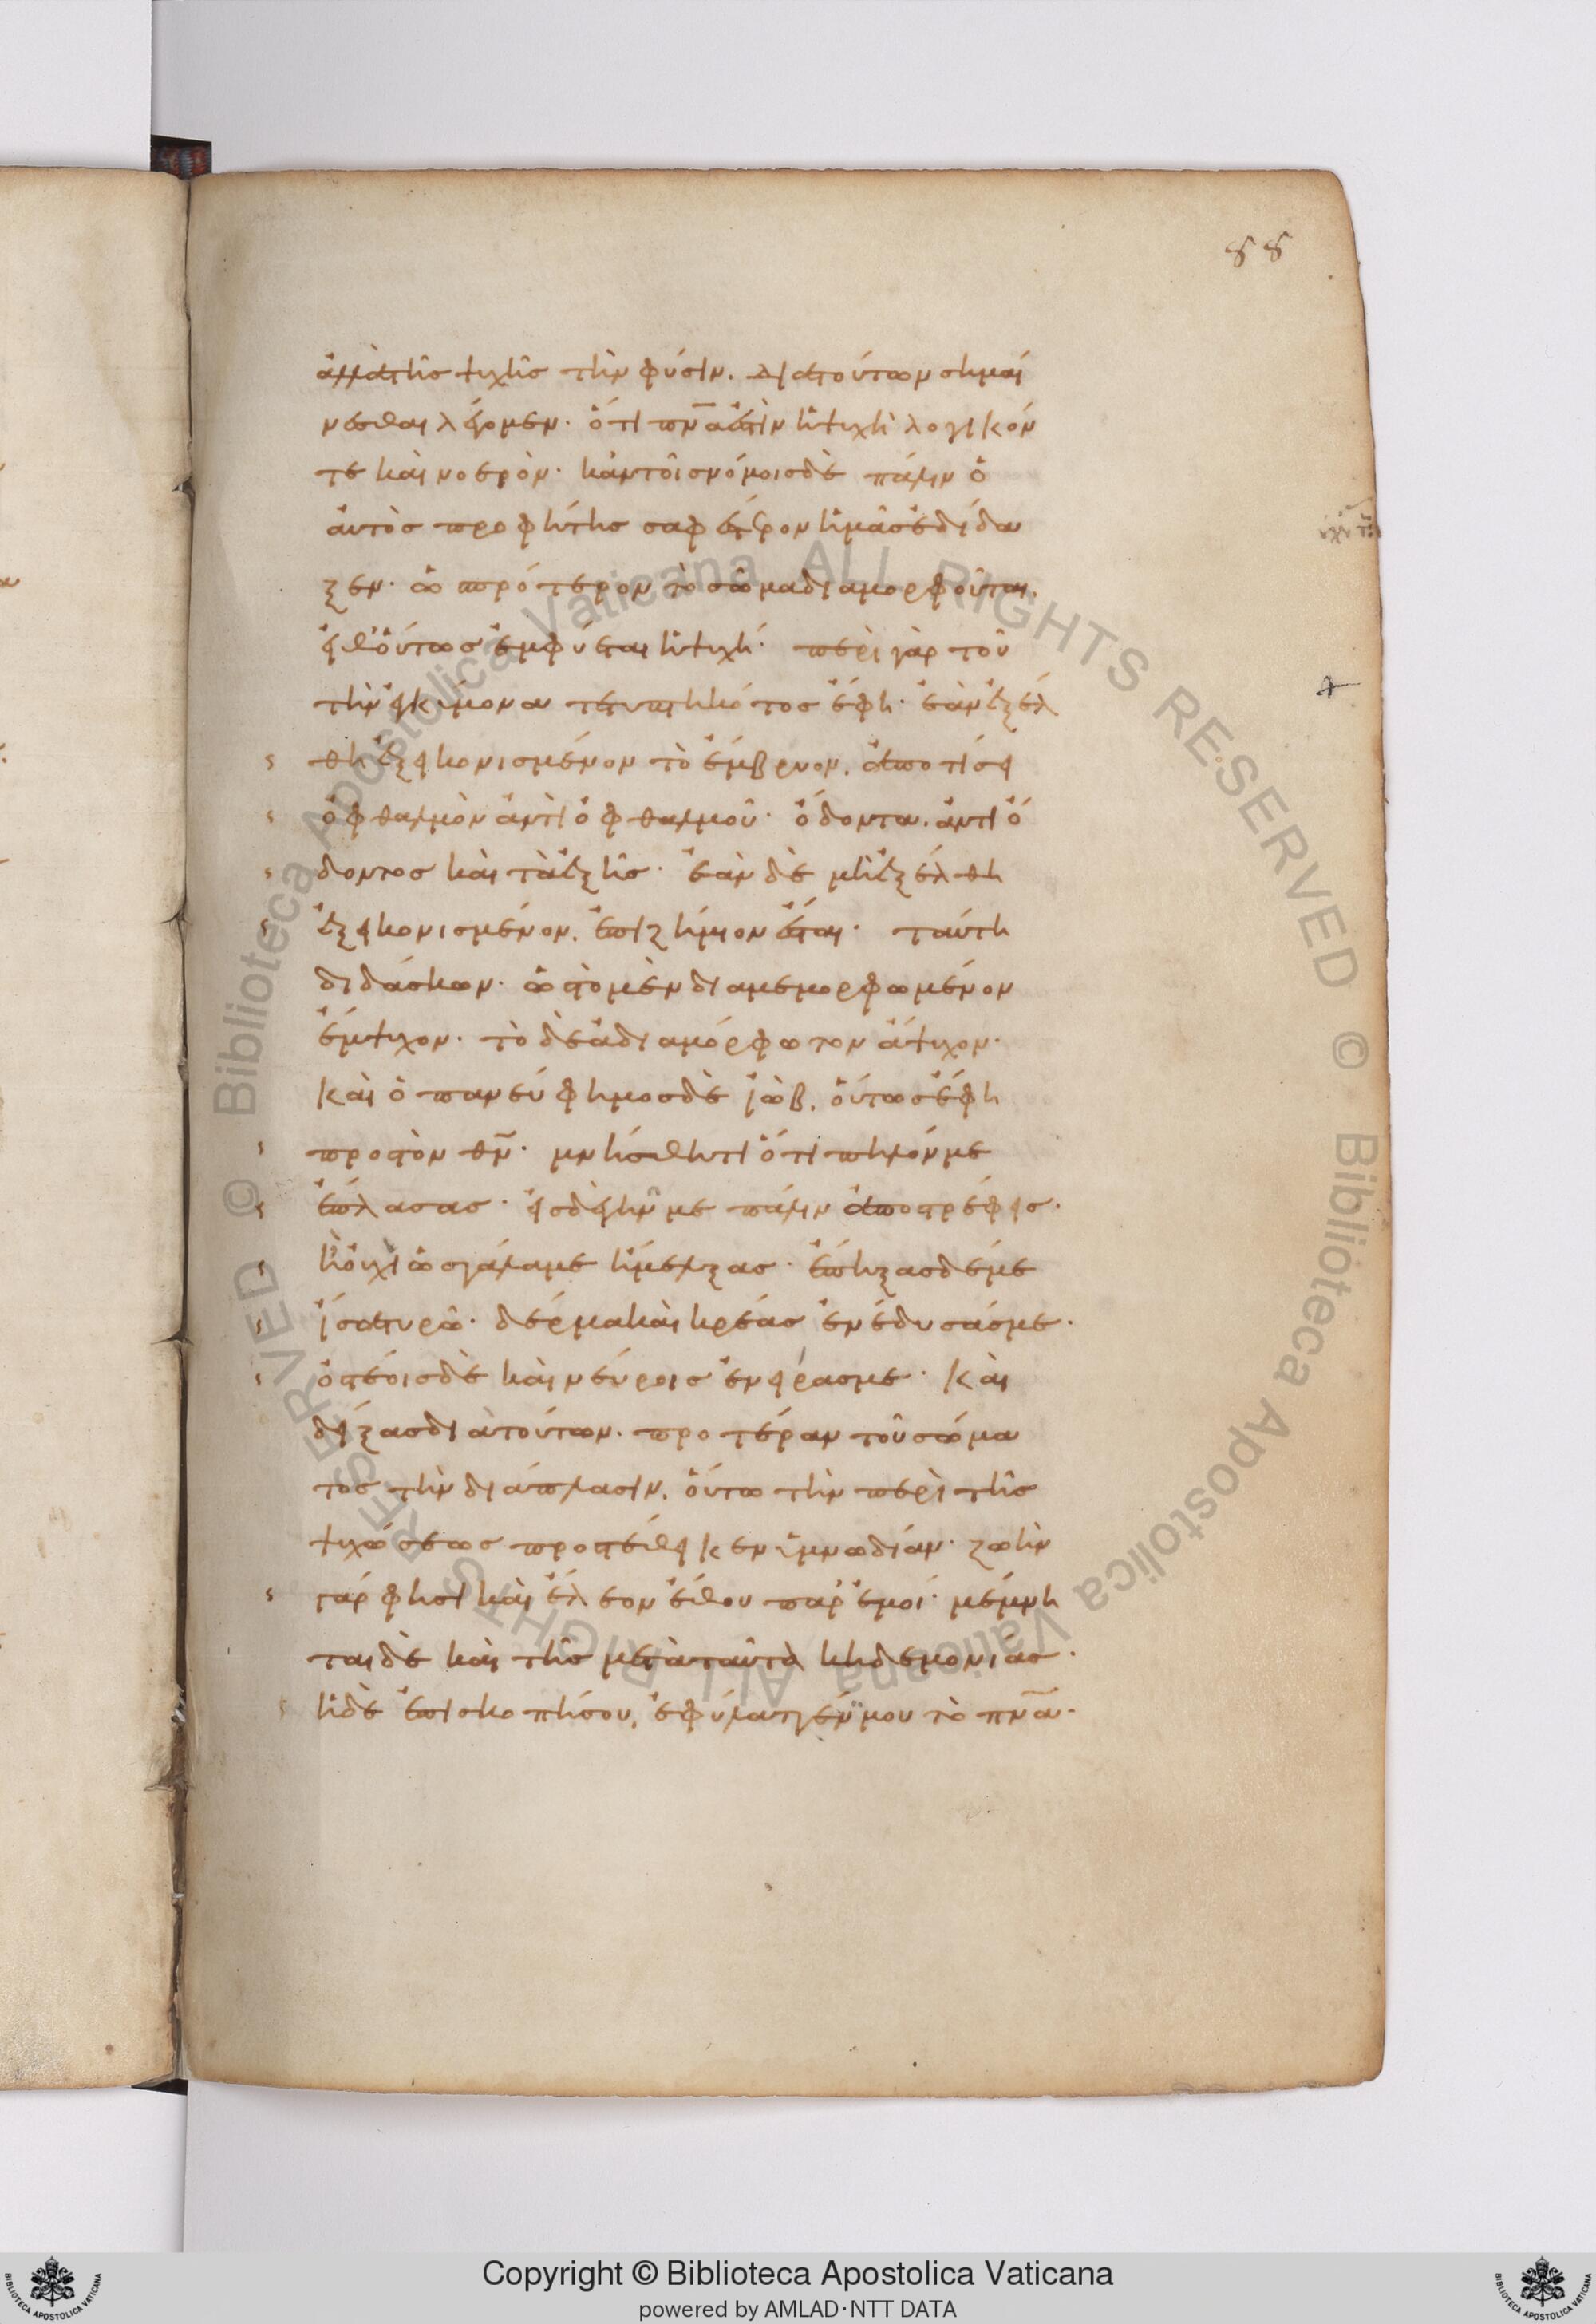 88
ἀλλὰ τῆς ψυχῆς τὴν φύσιν. διὰ τούτων σημαί
νεσθαι λέγομεν· ὅτι πν̅α ἐστὶν ἡ ψυχὴ λογικόν
τε καὶ νοερὸν· κἀν τοῖς νόμοις δὲ πάλιν ὁ
αὐτὸς προφήτης σαφέστερον ἡμᾶς ἐδίδα
ξεν· ὡς πρότερον τὸ σῶμα διαμορφοῦται.
εἶθ' οὕτως ἐμφύεται ἡ ψυχή· περὶ γὰρ τοῦ
τὴν ἐγκύμονα τετυπτηκότος ἔφη· ἐὰν ἐξέλ
θη ἐξεικονισμένον τὸ ἔμβρυον. ἀποτίσει
ὀφθαλμὸν ἀντὶ ὀφθαλμοῦ· ὀδόντα. ἀντὶ ὀ
δόντος καὶ τὰ ἑξῆς· ἐὰν δὲ μὴ ἐξέλθη
ἐξεικονισμένον. ἐπιζήμιον ἔσται· ταύτη
διδάσκων· ὡς τὸ μὲν διαμεμορφωμένον
ἔμψυχον· τὸ δὲ ἀδιαμόρφωτον ἄψυχον·
καὶ ὁ πανεύφημος δὲ ἰὼβ. οὕτως ἔφη
πρὸς τὸν θν̅· μνήσθητι ὅτι πηλόν με
ἔπλασας· εἰς δὲ γῆν με πάλιν ἀποστρέφεις·
ἢ οὐχὶ ὡς γάλα με ἤμελξας· ἔπηξας δέ με
ἴσα τυρῶ· δέρμα καὶ κρέας ἐνέδυσάς με·
ὀστέοις δὲ καὶ νεύροις ἔνειράς με· καὶ
δείξας διὰ τούτων. προτέραν τοῦ σώμα
τος τὴν διάπλασιν. οὕτω τὴν περὶ τῆς
ψυχώσεως προστέθεικεν ὑμνωδίαν· ζωὴν
γάρ φησι καὶ ἔλεον ἔθου παρ' ἐμοί· μέμνη
ται δὲ καὶ τῆς μετὰ ταῦτα κηδεμονίας·
ἡ δὲ ἐπισκοπή σου, ἐφύλαττέν μου τὸ πν̅α·
Copyright © Biblioteca Apostolica Vaticana
powered by AMLAD·NTT DATA